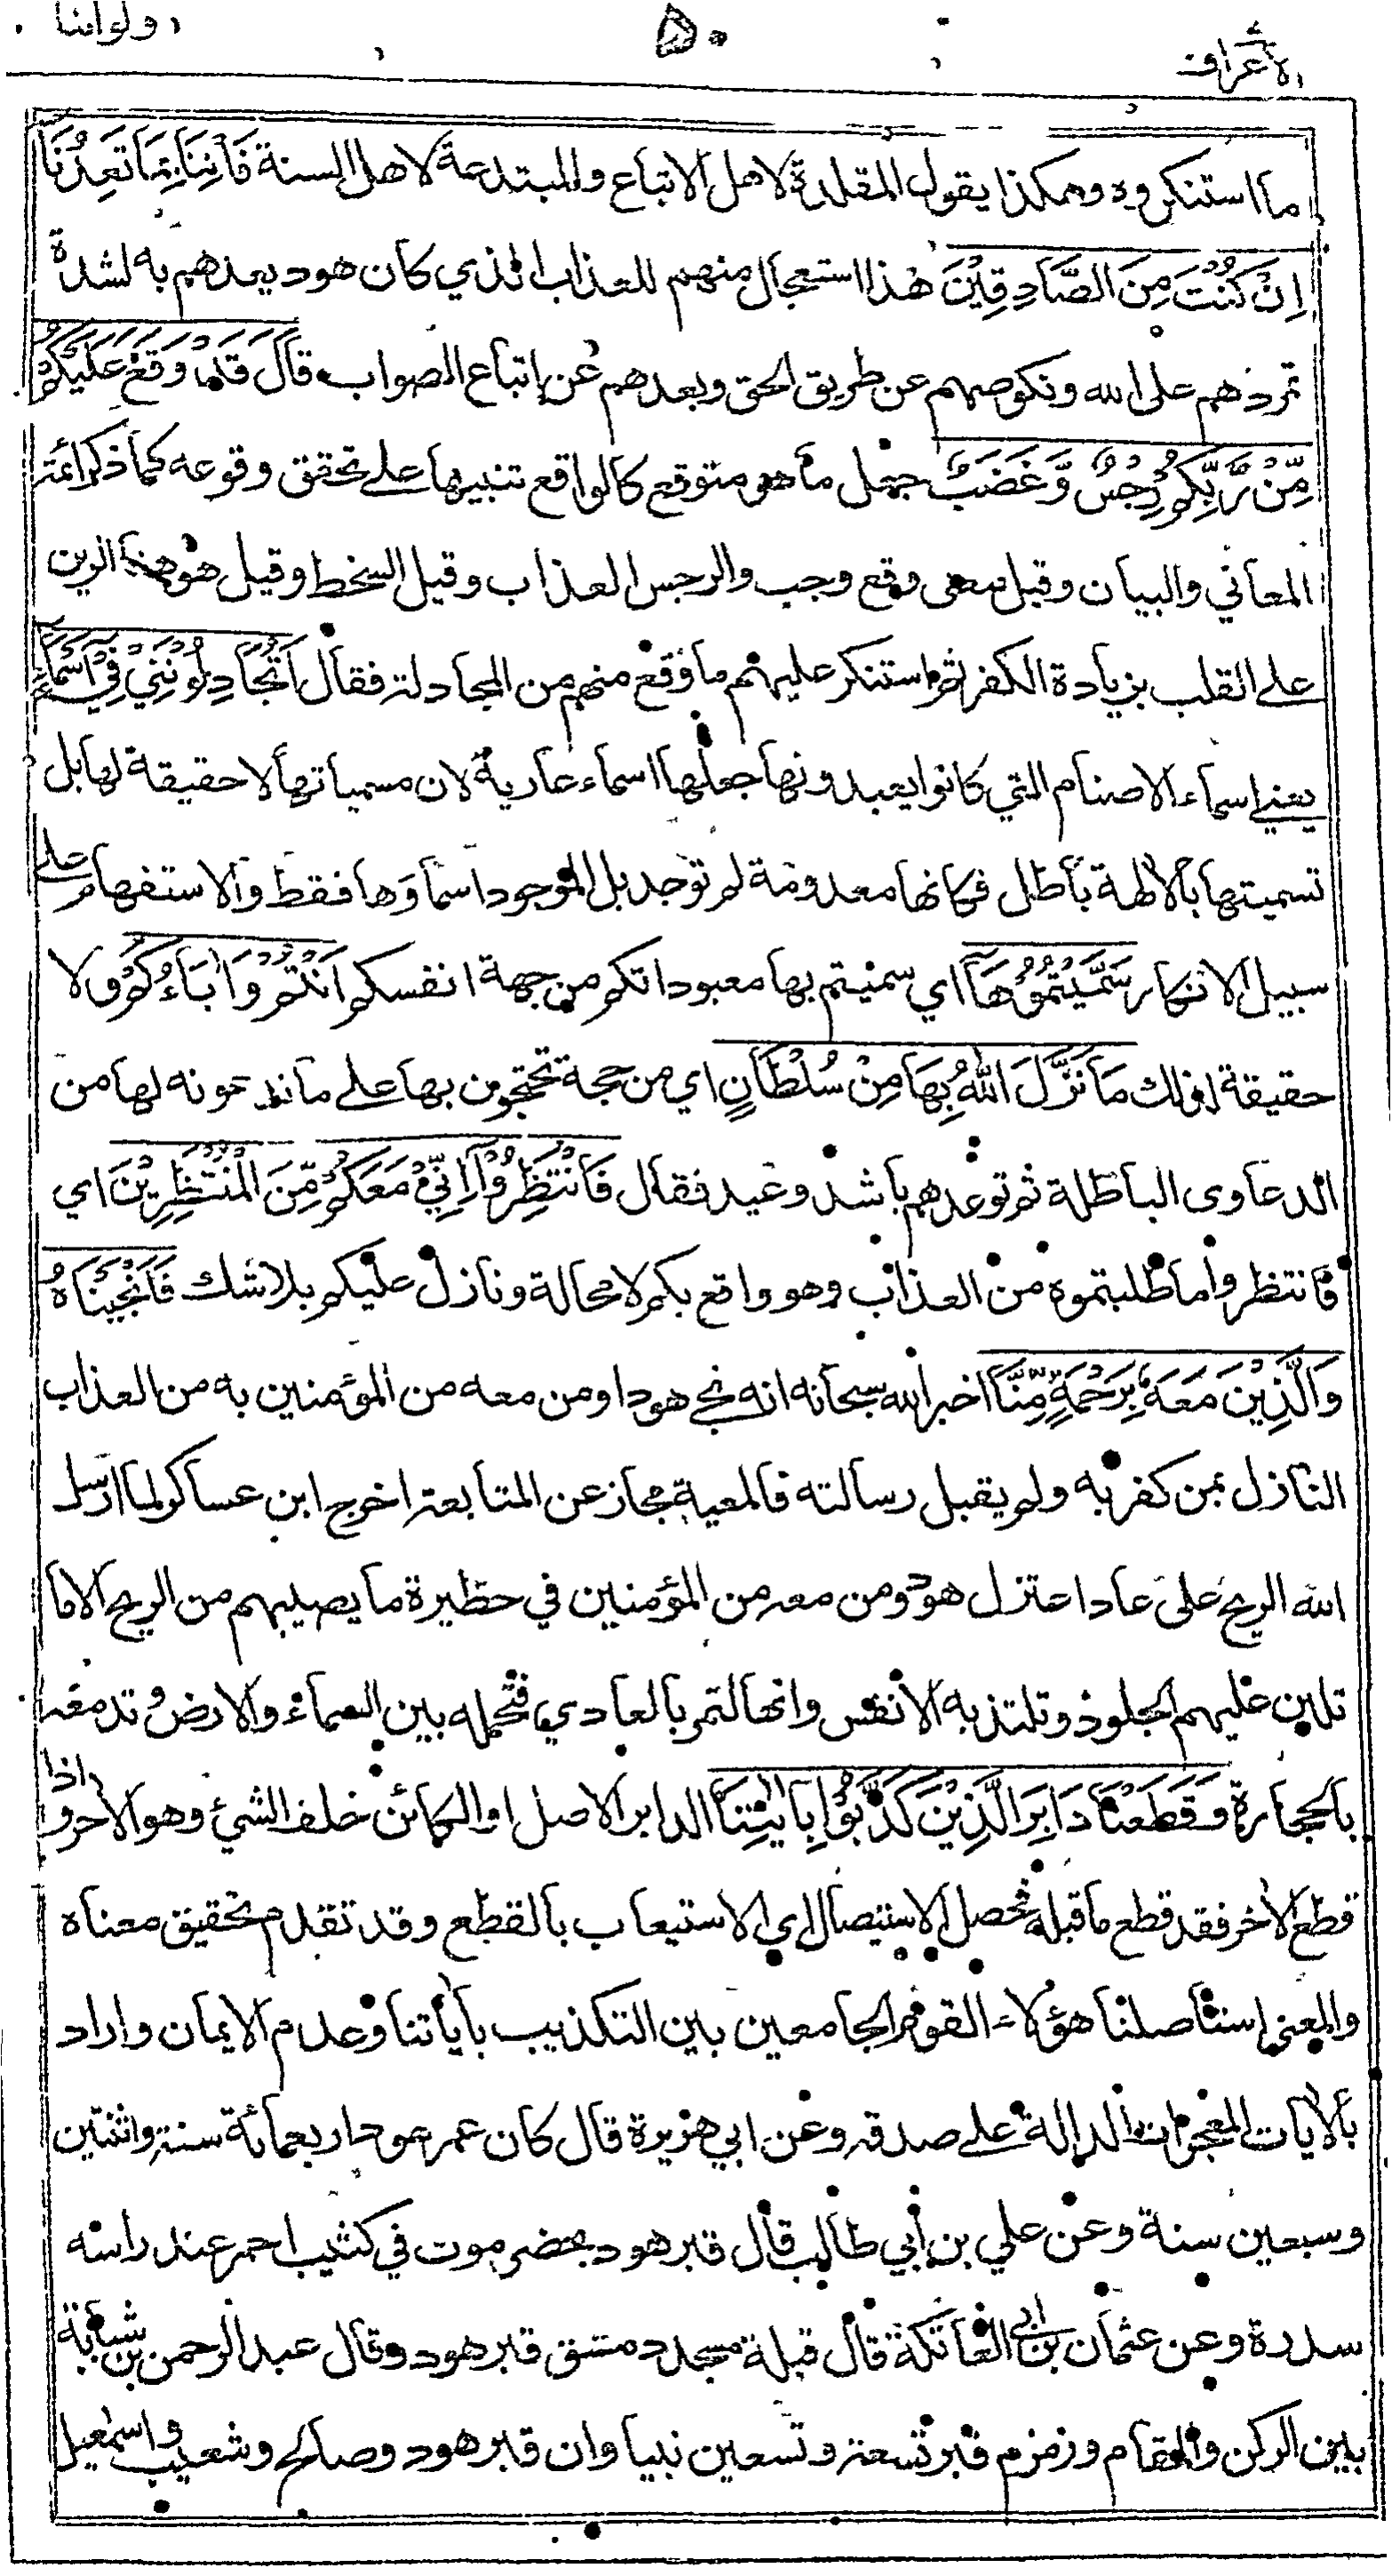 ولواننا ٥٠ الاعراف
ما استنكروه وهكذا يقول المقلدة لاهل الاتباع والمبتدعة لاهل السنة فَأْتِنَا بِمَا تَعِدُنَا
اِنْ كُنْتَ مِنَ الصَّادِقِيْنَ هذا استعجال منهم للعذاب الذي كان هود يعدهم به لشدة
تمردهم على الله ونكوصهم عن طريق الحق وبعدهم عن اتباع الصواب قَالَ قَدْ وَقَعَ عَلَيْكُمْ
مِّنْ رَّبِّكُمْ رِجْسٌ وَّغَضَبٌ جعل ما هو متوقع كالواقع تنبيها على تحقق وقوعه كما ذكر ائمة
المعاني والبيان وقيل معنى وقع وجب والرجس العذاب وقيل السخط وقيل هو هنا الرين
على القلب بزيادة الكفر ثم استنكر عليهم ما وقع منهم من المجادلة فقال اَتُجَادِلُوْنَنِيْ فِيْ اَسْمَاءٍ
يعني اسماء الاصنام التي كانوا يعبدونها جعلها اسماء عارية لان مسمياتها لا حقيقة لها بل
تسميتها بالالهة باطل فكانها معدومة لم توجد بل الموجود اسماؤها فقط والاستفهام على
سبيل الانكار سَمَّيْتُمُوْهَا اي سميتم بها معبوداتكم من جهة انفسكم اَنْتُمْ وَاٰبَاءُكُمْ ولا
حقيقة لذلك مَا نَزَّلَ اللّٰهُ بِهَا مِنْ سُلْطَانٍ اي من حجة تحتجون بها على ما تدعونه لها من
الدعاوى الباطلة ثم توعدهم باشد وعيد فقال فَانْتَظِرُوْا اِنِّيْ مَعَكُمْ مِّنَ الْمُنْتَظِرِيْنَ اي
فانتظروا ما طلبتموه من العذاب وهو واقع بكم لا محالة ونازل عليكم بلا شك فَاَنْجَيْنَاهُ
وَالَّذِيْنَ مَعَهٗ بِرَحْمَةٍ مِّنَّا اخبر الله سبحانه انه نجى هودا ومن معه من المؤمنين به من العذاب
النازل بمن كفر به ولم يقبل رسالته فالمعية مجاز عن المتابعة اخرج ابن عساكر لما ارسل
الله الريح على عاد اعتزل هود ومن معه من المؤمنين في حظيرة ما يصيبهم من الريح الا ما
تلين عليهم الجلود وتلتذ به الانفس وانها لتمر بالعادي فتحمله بين السماء والارض وتدمغه
بالحجارة وَقَطَعْنَا دَابِرَ الَّذِيْنَ كَذَّبُوْا بِاٰيٰتِنَا الدابر الاصل او الكائن خلف الشيء وهو الاخر واذا
قطع الاخر فقد قطع ما قبله فحصل الاستيصال اي الاستيعاب بالقطع وقد تقدم تحقيق معناه
والمعنى استأصلنا هؤلاء القوم الجامعين بين التكذيب بآياتنا وعدم الايمان واراد
بالايات المعجزات الدالة على صدقه وعن ابي هريرة قال كان عمر هود اربعمائة سنة واثنتين
وسبعين سنة وعن علي بن ابي طالب قال قبر هود بحضرموت في كثيب احمر عند راسه
سدرة وعن عثمان بن ابي العاتكة قال قبلة مسجد دمشق قبر هود وقال عبد الرحمن بن شبابة
بين الركن والمقام وزمزم قبر تسعة وتسعين نبيا وان قبر هود وصالح وشعيب واسمٰعيل